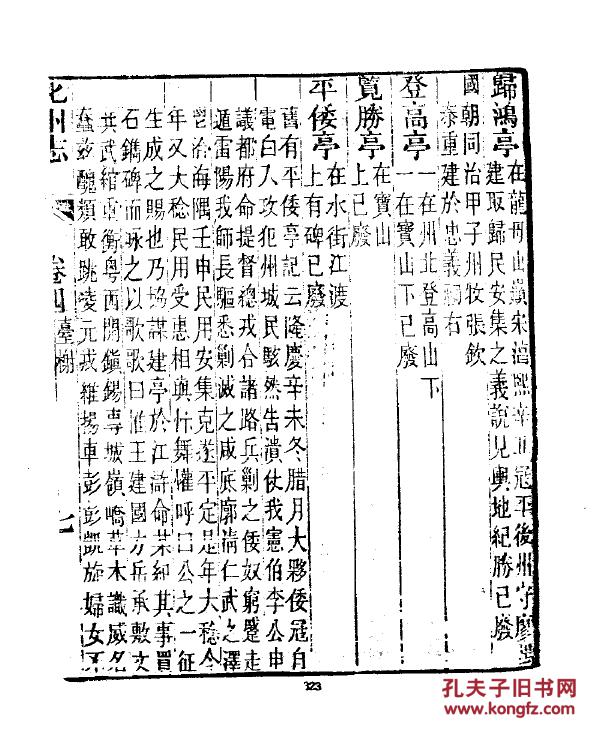 歸鴻亭在龍母山巔宋淳熙辛丑寇平後州守廖
建取歸民安集之義說見輿地紀勝已廢
國朝同治甲子州牧張欽
泰重建於忠義祠右
登高亭一在州北登高山下
一在寶山下已廢
覽勝亭在寶山
上已廢
平倭亭在水街江渡
上有碑已廢
舊有平倭亭記云隆慶辛未冬腊月大夥倭寇自
電白入攻犯州城民駭然告潰仗我憲伯李公申
議都府命提督總戎合諸路兵剿之倭奴窮蹙走
遁雷陽我師長驅悉剿滅之咸底廓清仁武之澤
洽海隅壬申民用安集克遂平定是年大稔今
年又大稔民用受惠相與忭舞懽呼曰公之一征
生成之賜也乃協謀建亭於江滸命某紀其事買
石鐫碑而咏之以歌歌曰惟王建國方岳承敷文
共武綰重衡粵西開鎮錫專城嶺嶠草木識威名
蠢茲醜類敢跳凌元戎雜揚車彭彭凱旋婦女不
化州志 卷四 臺榭 七
323
孔夫子旧书网
www.kongfz.com